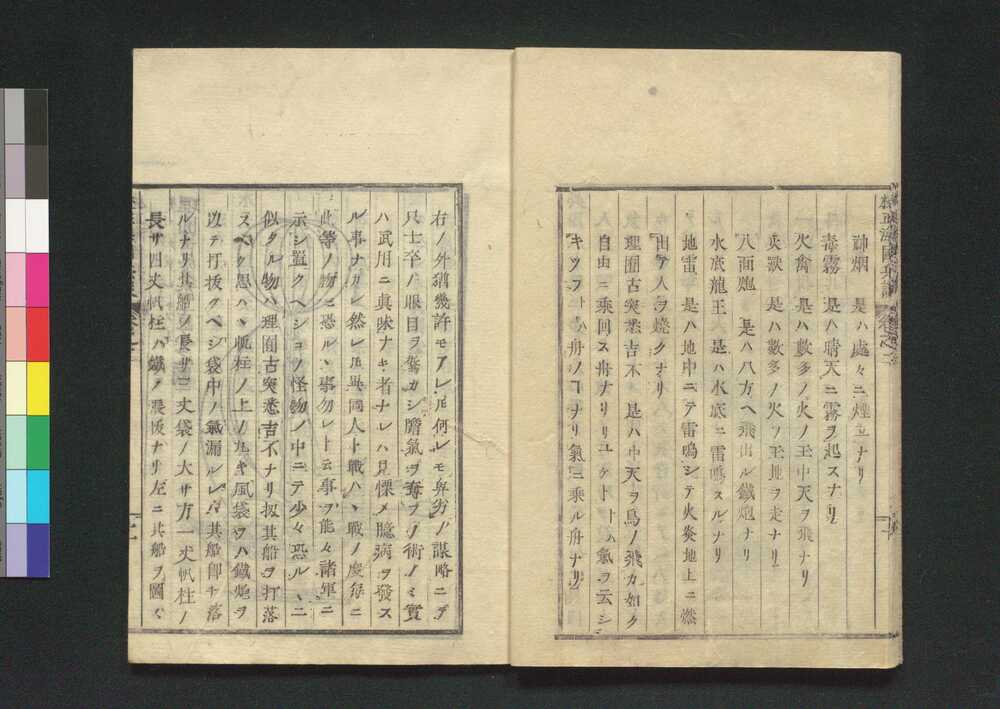 神烟　是ハ處々ニ煙立ナリ
毒霧　是ハ晴天ニ霧ヲ起スナリ
火禽　是ハ數多ノ火ノ玉中天ヲ飛ナリ
炎獸　是ハ數多ノ火ノ玉地ヲ走ナリ
八面炮　是ハ八方ヘ飛出ル鐵炮ナリ
水底龍王　是ハ水底ニ雷鳴スルナリ
地雷　是ハ地中ニテ雷鳴シテ火炎地上ニ燃
出テ人ヲ燒クナリ
理圄古突悉吉不　是ハ中天ヲ鳥ノ飛カ如ク
自由ニ乘回ス舟ナリリユクトハ氣ヲ云シ
キップハ舟ノコナリ氣ニ乘ル舟ナリ
右ノ外猶幾許モアレ𪜈何レモ卑劣ノ謀略ニテ
只士卒ノ眼目ヲ驚カシ膽氣ヲ奪フノ術ノミ實
ハ武用ニ眞味ナキ者ナレハ見慄メ臆病ヲ發ス
ル事ナカレ然レ𪜈異國人ト戰ハヽ戰ノ度每ニ
此等ノ物ニ恐ルヽ事勿レト云事ヲ能々諸軍ニ
示シ置クヘシコノ怪物ノ中ニテ少々恐ルヽニ
似タル物ハ理圄古突悉吉不ナリ扨其船ヲ打落
スヘク思ハヽ帆柱ノ上ノ丸キ風袋ヲハ鐵炮ヲ
以テ打拔クベシ袋中ノ氣漏ルレハ其船卽チ落
ルナリ其船ノ長サ三丈袋ノ大サ方一丈帆柱ノ
長サ四丈帆柱ハ鐵ノ
ナリ左ニ其船ヲ圖ス